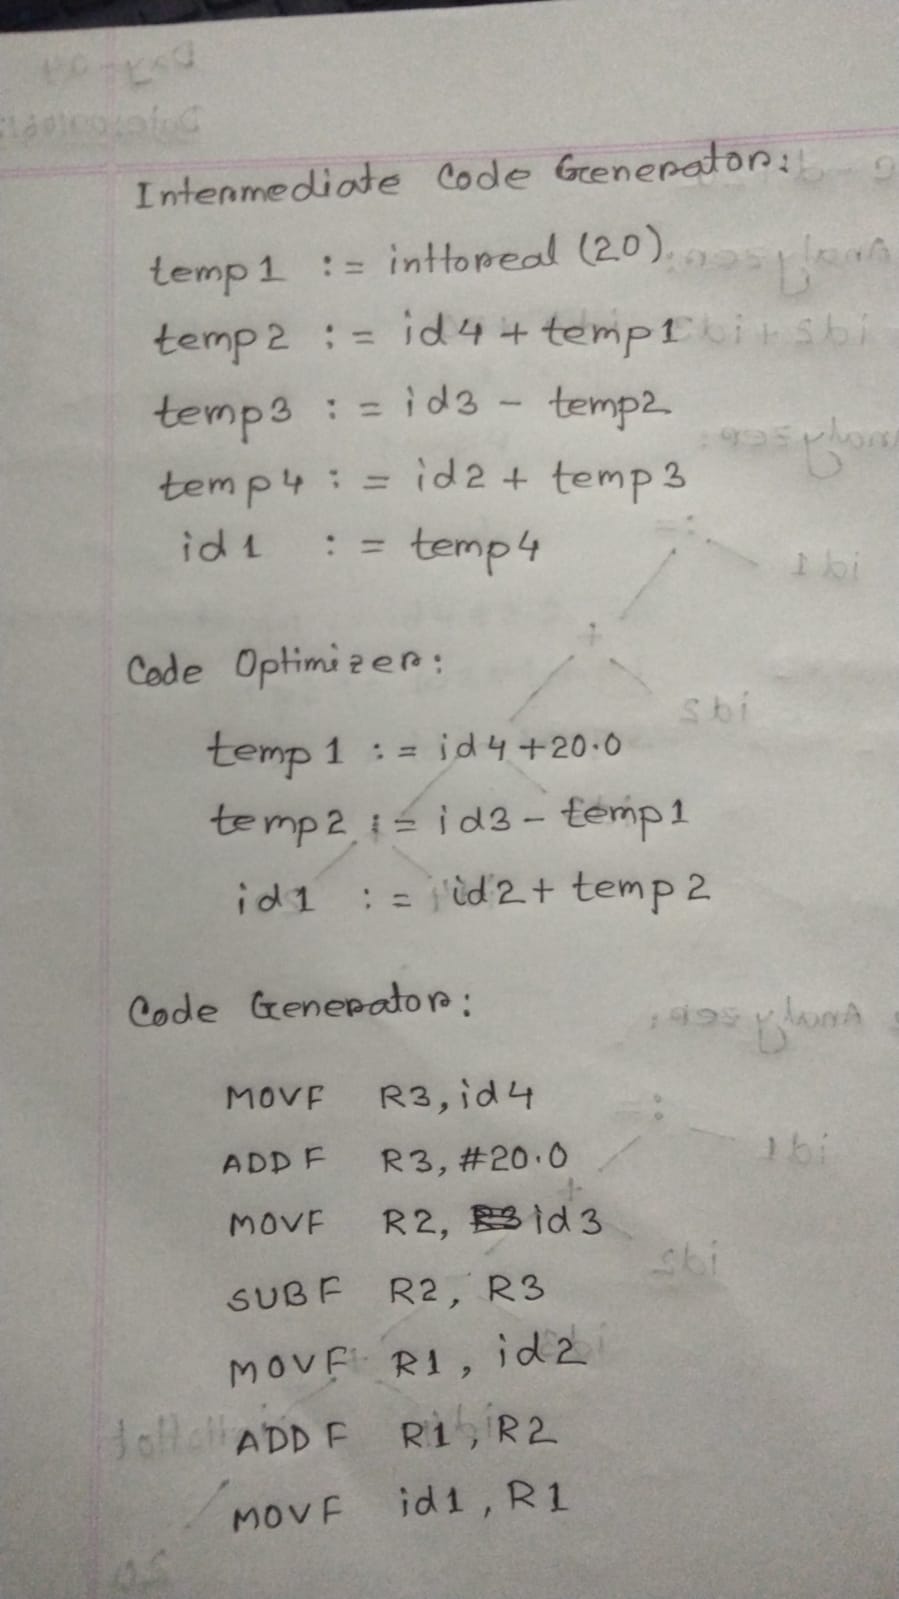 Intermediate Code Generator:
temp1 := inttoreal (20)
temp2 := id4 + temp1
temp3 := id3 - temp2
temp4 := id2 + temp3
id1 := temp4
Code Optimizer:
temp1 := id4 + 20.0
temp2 := id3 - temp1
id1 := id2 + temp2
Code Generator:
MOVF R3, id4
ADDF R3, #20.0
MOVF R2, id3
SUBF R2, R3
MOVF R1, id2
ADDF R1, R2
MOVF id1, R1